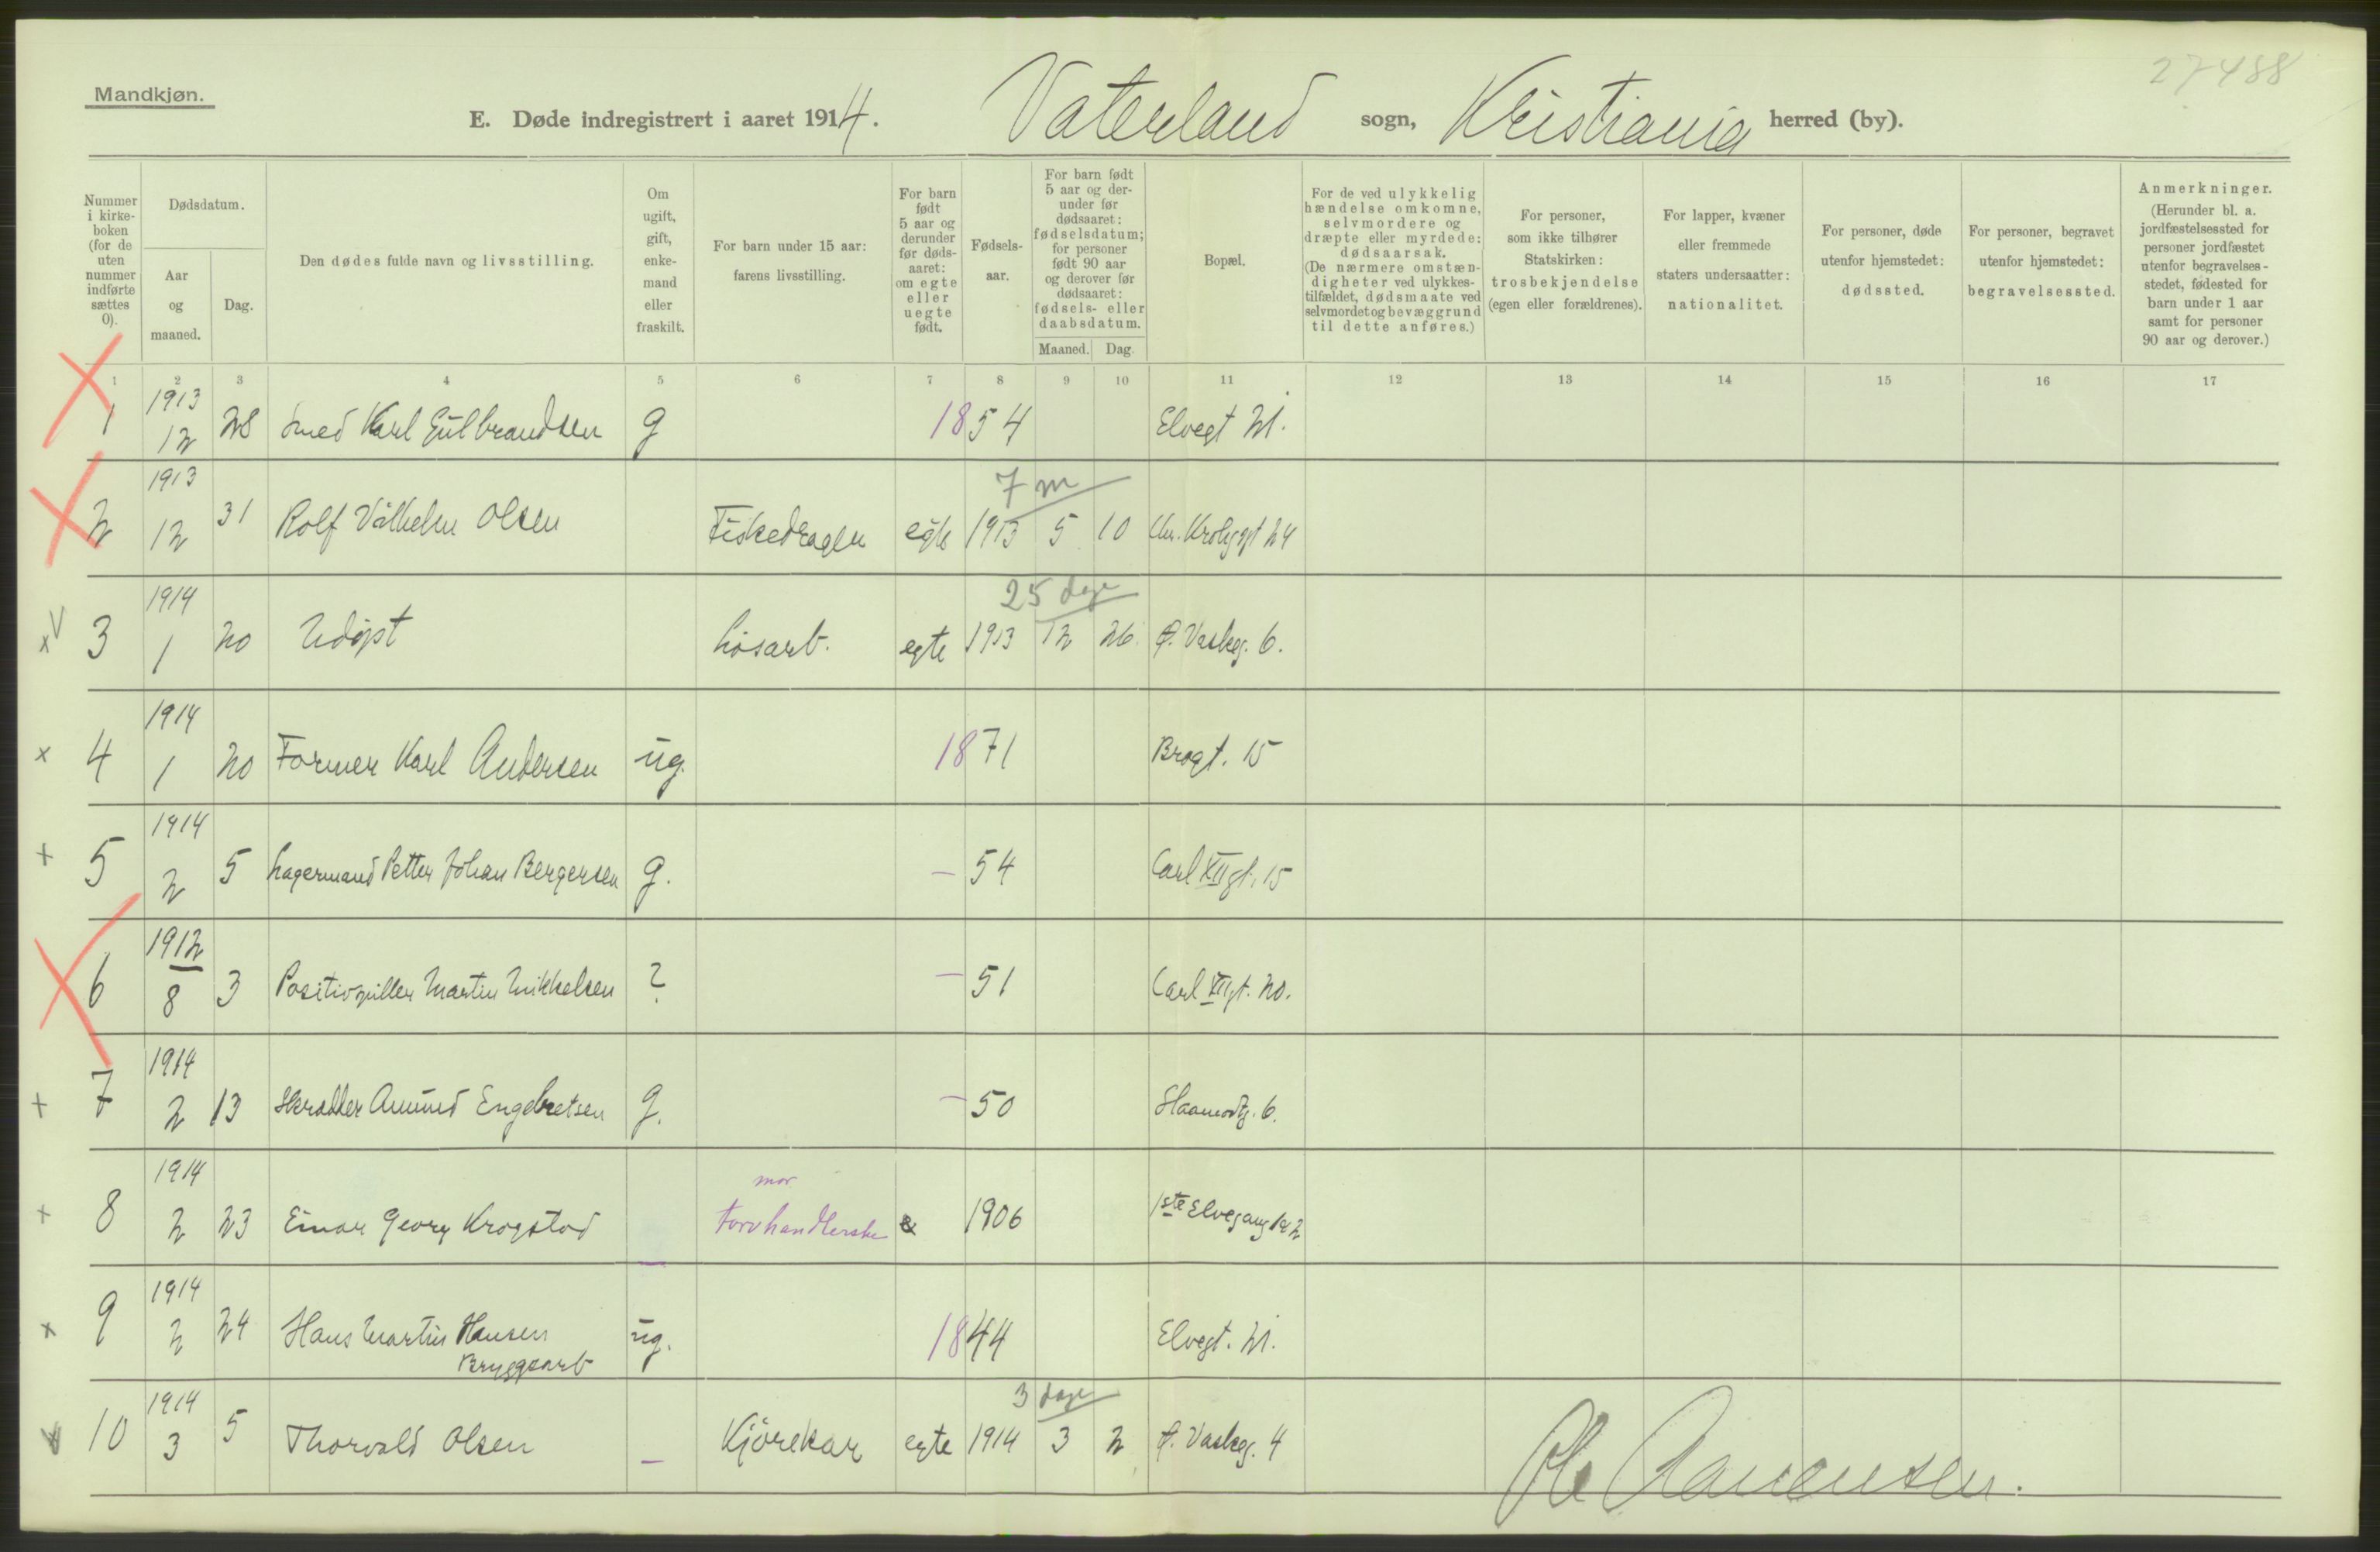 27488
Mandkjøn.
E. Døde indregistrert i aaret 1914. Vaterland sogn, Kristiania herred (by).
Nummer i kirkeboken (for de uten nummer indførte sættes 0).
Dødsdatum.
Aar og maaned.
Dag.
Den dødes fulde navn og livsstilling.
Om ugift, gift, enkemand eller fraskilt.
For barn under 15 aar: farens livsstilling.
For barn født 5 aar og derunder før dødsaaret: om egte eller uegte født.
Fødselsaar.
For barn født 5 aar og derunder før dødsaaret: fødselsdatum; for personer født 90 aar og derover før dødsaaret: fødsels- eller daabsdatum.
Maaned. Dag.
Bopæl.
For de ved ulykkelig hændelse omkomne, selvmordere og dræpte eller myrdede: dødsaarsak. (De nærmere omstændigheter ved ulykkestilfældet, dødsmaate ved selvmordet og bevæggrund til dette anføres.)
For personer, som ikke tilhører Statskirken: trosbekjendelse (egen eller forældrenes).
For lapper, kvæner eller fremmede staters undersaatter: nationalitet.
For personer, døde utenfor hjemstedet: dødssted.
For personer, begravet utenfor hjemstedet: begravelsessted.
Anmerkninger. (Herunder bl. a. jordfæstelsessted for personer jordfæstet utenfor begravelsesstedet, fødested for barn under 1 aar samt for personer 90 aar og derover.)
1 2 3 4 5 6 7 8 9 10 11 12 13 14 15 16 17
1 1913 12 28 Smed Karl Gulbrandsen g 1854 Elvegt 21.
7 m
2 1913 12 31 Rolf Vilhelm Olsen Fiskedrager egte 1913 5 10 Chr. Krohgsgt 24
25 dage
3 1914 1 20 Udøpt Løsarb. egte 1913 12 26 Ø. Vaskeg. 6.
4 1914 1 20 Former Karl Andersen ug. 1871 Brogt. 15
5 1914 2 5 Lagermand Petter Johan Bergersen g. – 54 Carl XII gt. 15
6 1912 8 3 Positivspiller Martin Mikkelsen ? – 51 Carl XII gt. 20.
7 1914 2 13 Skrædder Amund Engebretsen g. – 50 6.
mor
8 1914 2 23 Einar Georg Krogstad torvhandlerske 1906 1ste Elvegang
9 1914 2 24 Hans Martin Hansen ug. 1844 Elvegt. 21.
Bryggearb
3 dage
10 1914 3 5 Thorvald Olsen – Kjørekar egte 1914 3 2 Ø. Vaskeg. 4